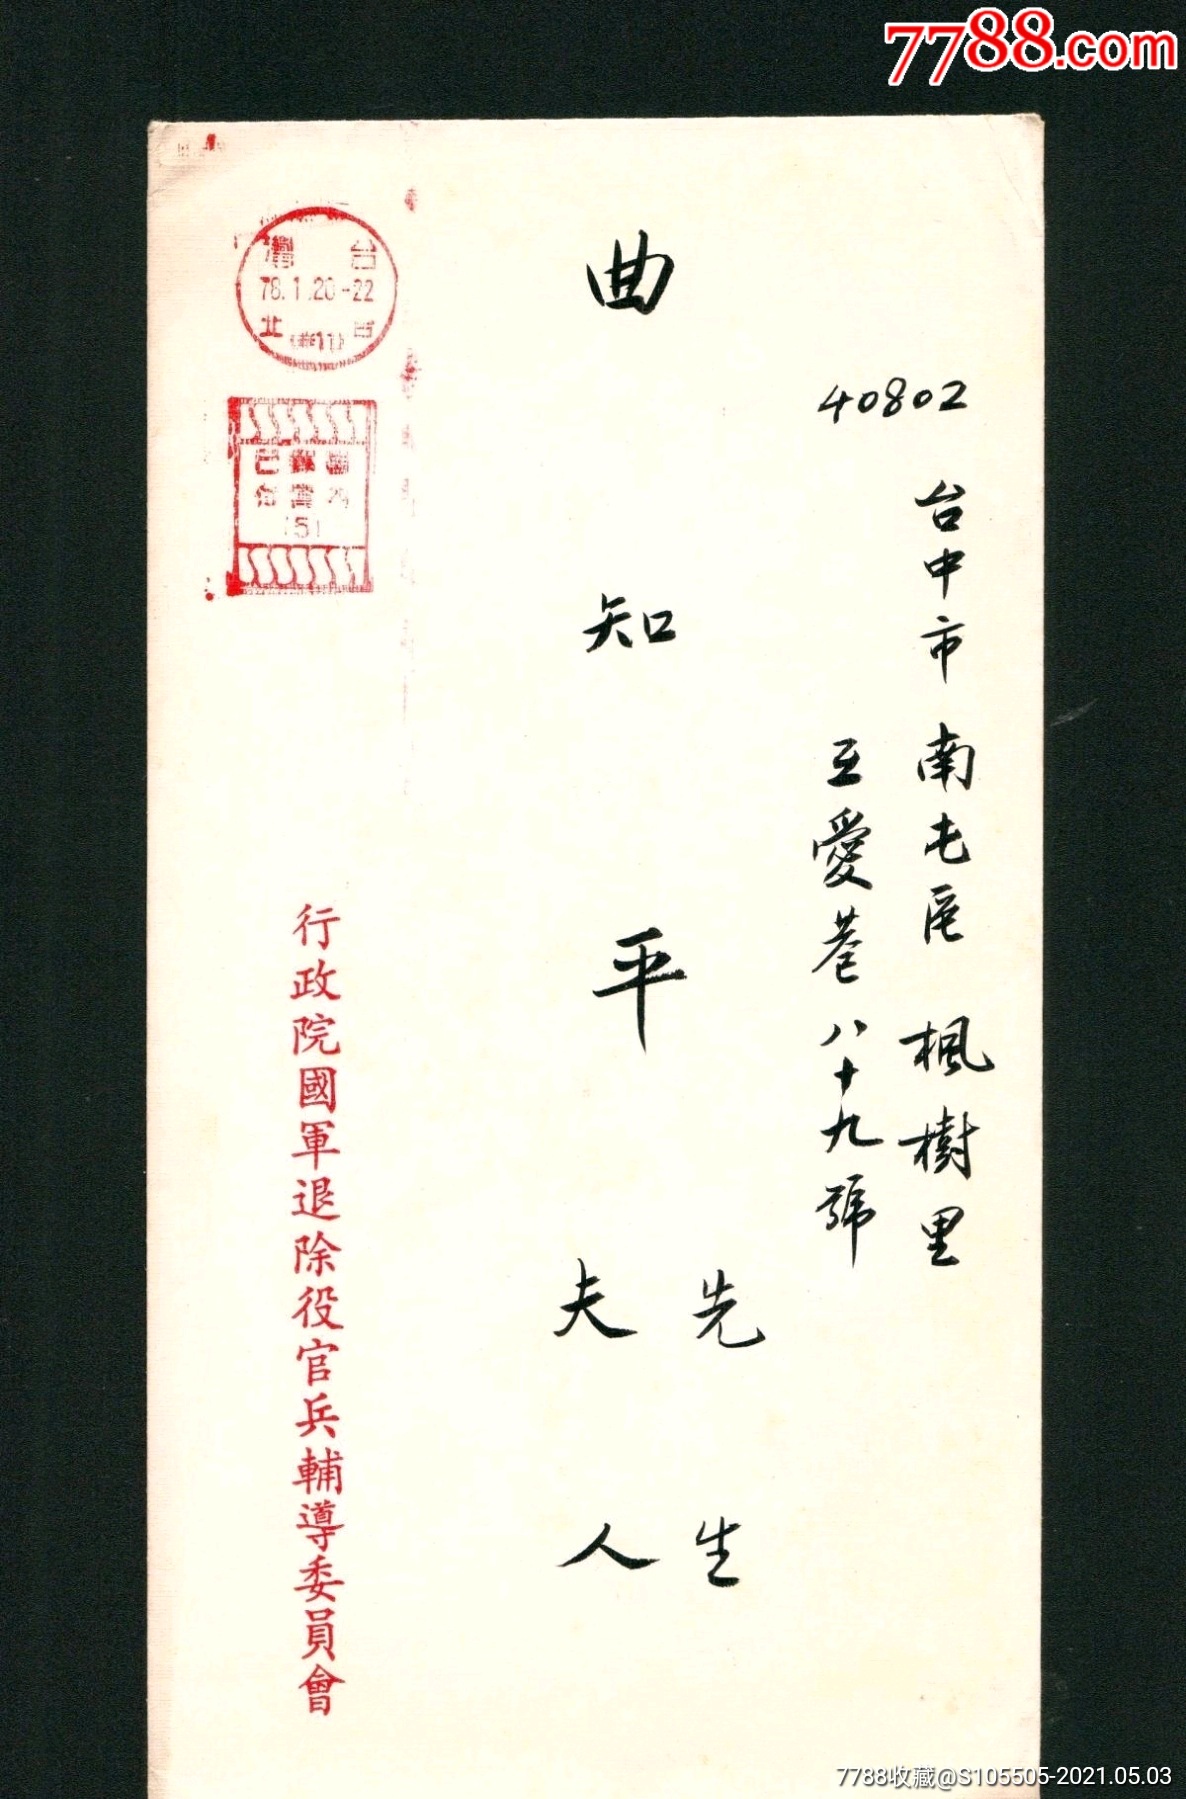 7788.com
台灣
78.1.20-22
台北
國內
郵資
已付
(5)
40802
台中市南屯區楓樹里
互愛巷八十九號
曲知平先生
夫人
行政院國軍退除役官兵輔導委員會
7788收藏@S105505-2021.05.03